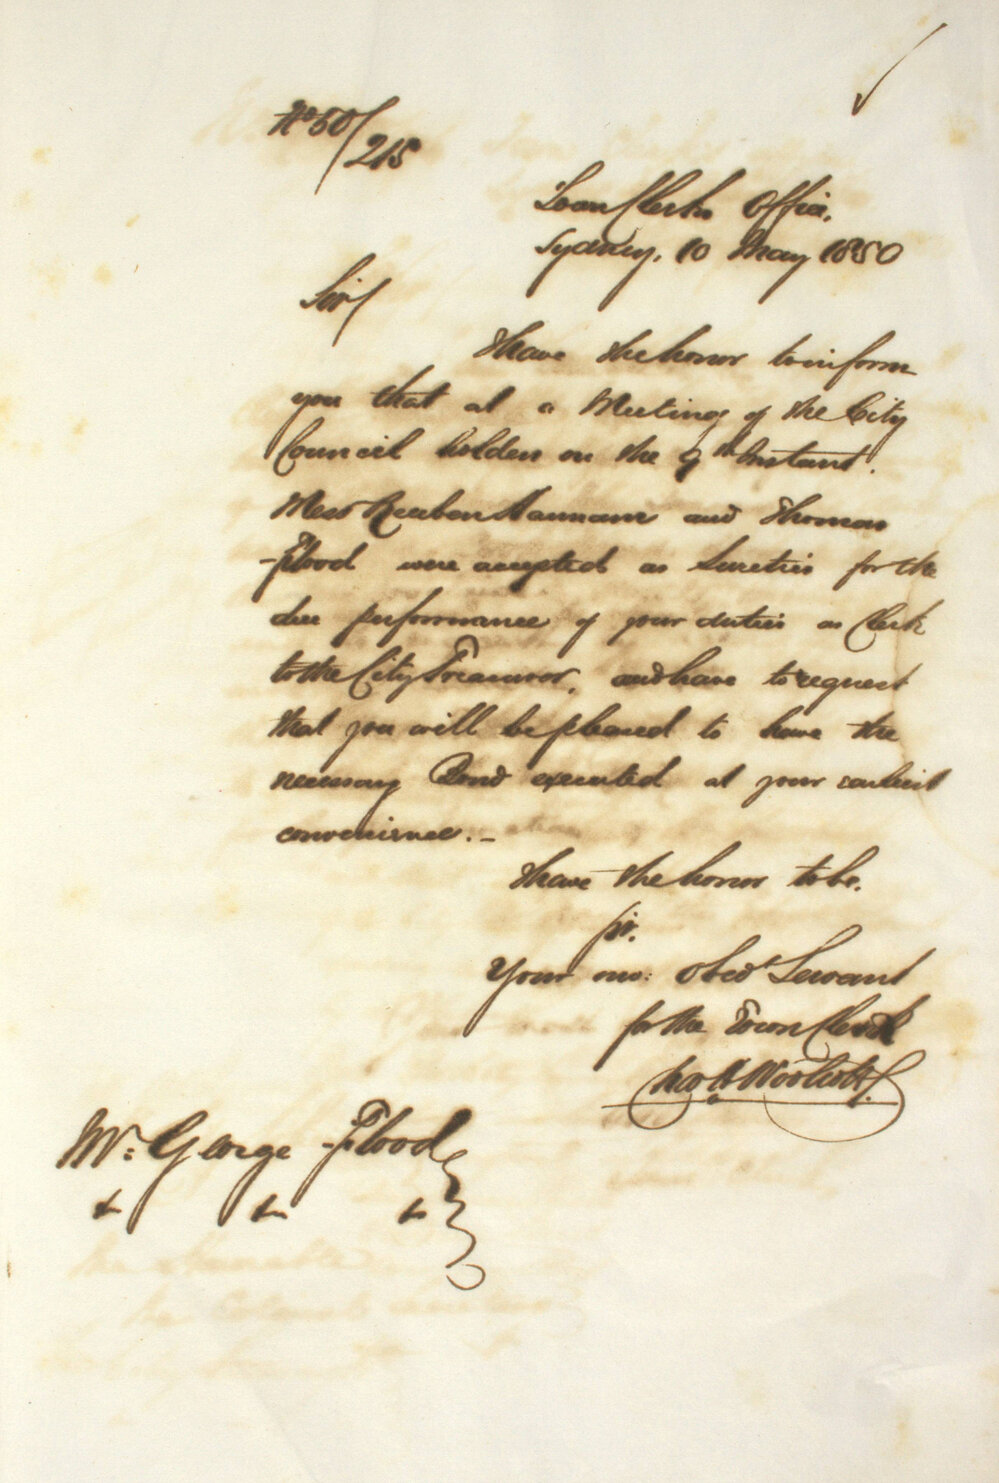 No 50/215
Town Clerks Office.
Sydney. 10 May 1850
Sir/
I have the honor to inform
you that at a Meeting of the City
Council holden on the 9th Instant.
Mess Reuben Hannam and Thomas
Flood were accepted as Sureties for the
due performance of your duties as Clerk
to the City Treasurer, and have to request
that you will be pleased to have the
necessary Bond executed at your earliest
convenience.-
I have the honor to be.
Sir.
Your mo: obedt Servant
for the Town Clerk
Chas H Woolcott
Mr: George Flood
&c &c &c